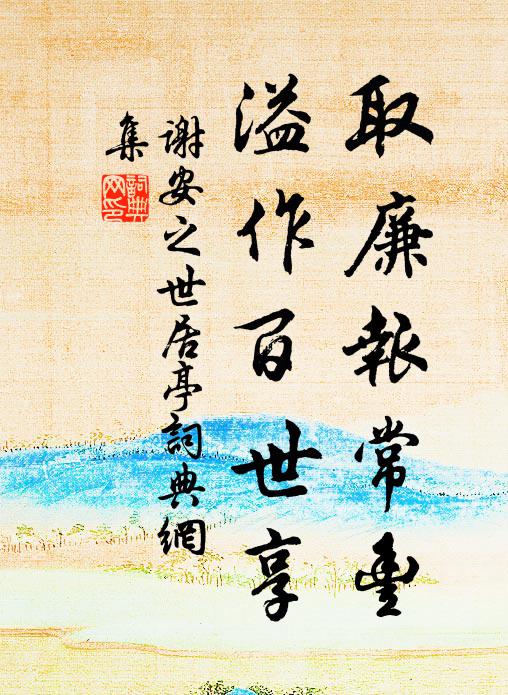 取廉報常豐
溢作百世享
謝安之世居亭詞典網
集
詞典
网印